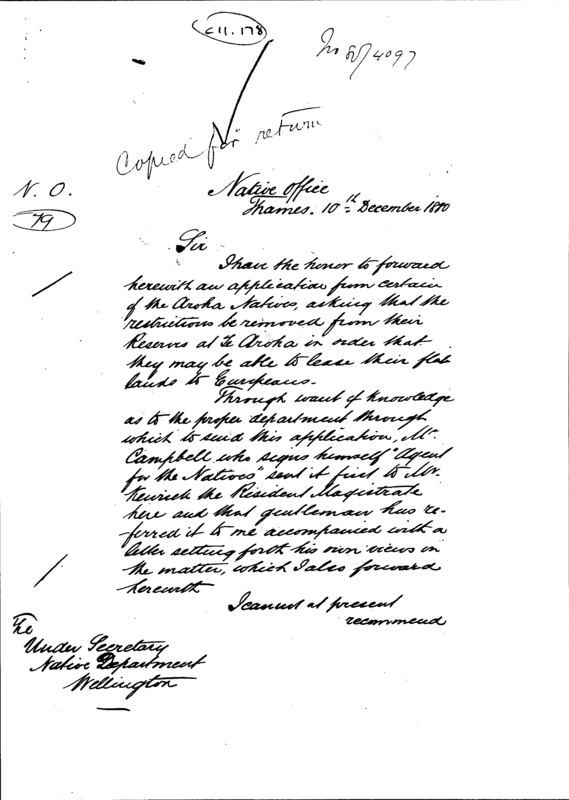 C11.178
No 80/4097
Copied for return
N. O.
79
Native Office
Thames. 10th December 1880
Sir
I have the honor to forward
herewith an application from certain
of the Aroha Natives, asking that the
restrictions be removed from their
Reserves at Te Aroha in order that
they may be able to lease their flat
lands to Europeans.
Through want of knowledge
as to the proper department through
which to send this application, Mr.
Campbell who signs himself "Agent
for the Natives" sent it first to Mr.
Kenrick the Resident Magistrate
here and that gentleman has re-
ferred it to me accompanied with a
letter setting forth his own views in
the matter, which I also forward
herewith
I cannot at present
recommend
The
Under Secretary
Native Department
Wellington